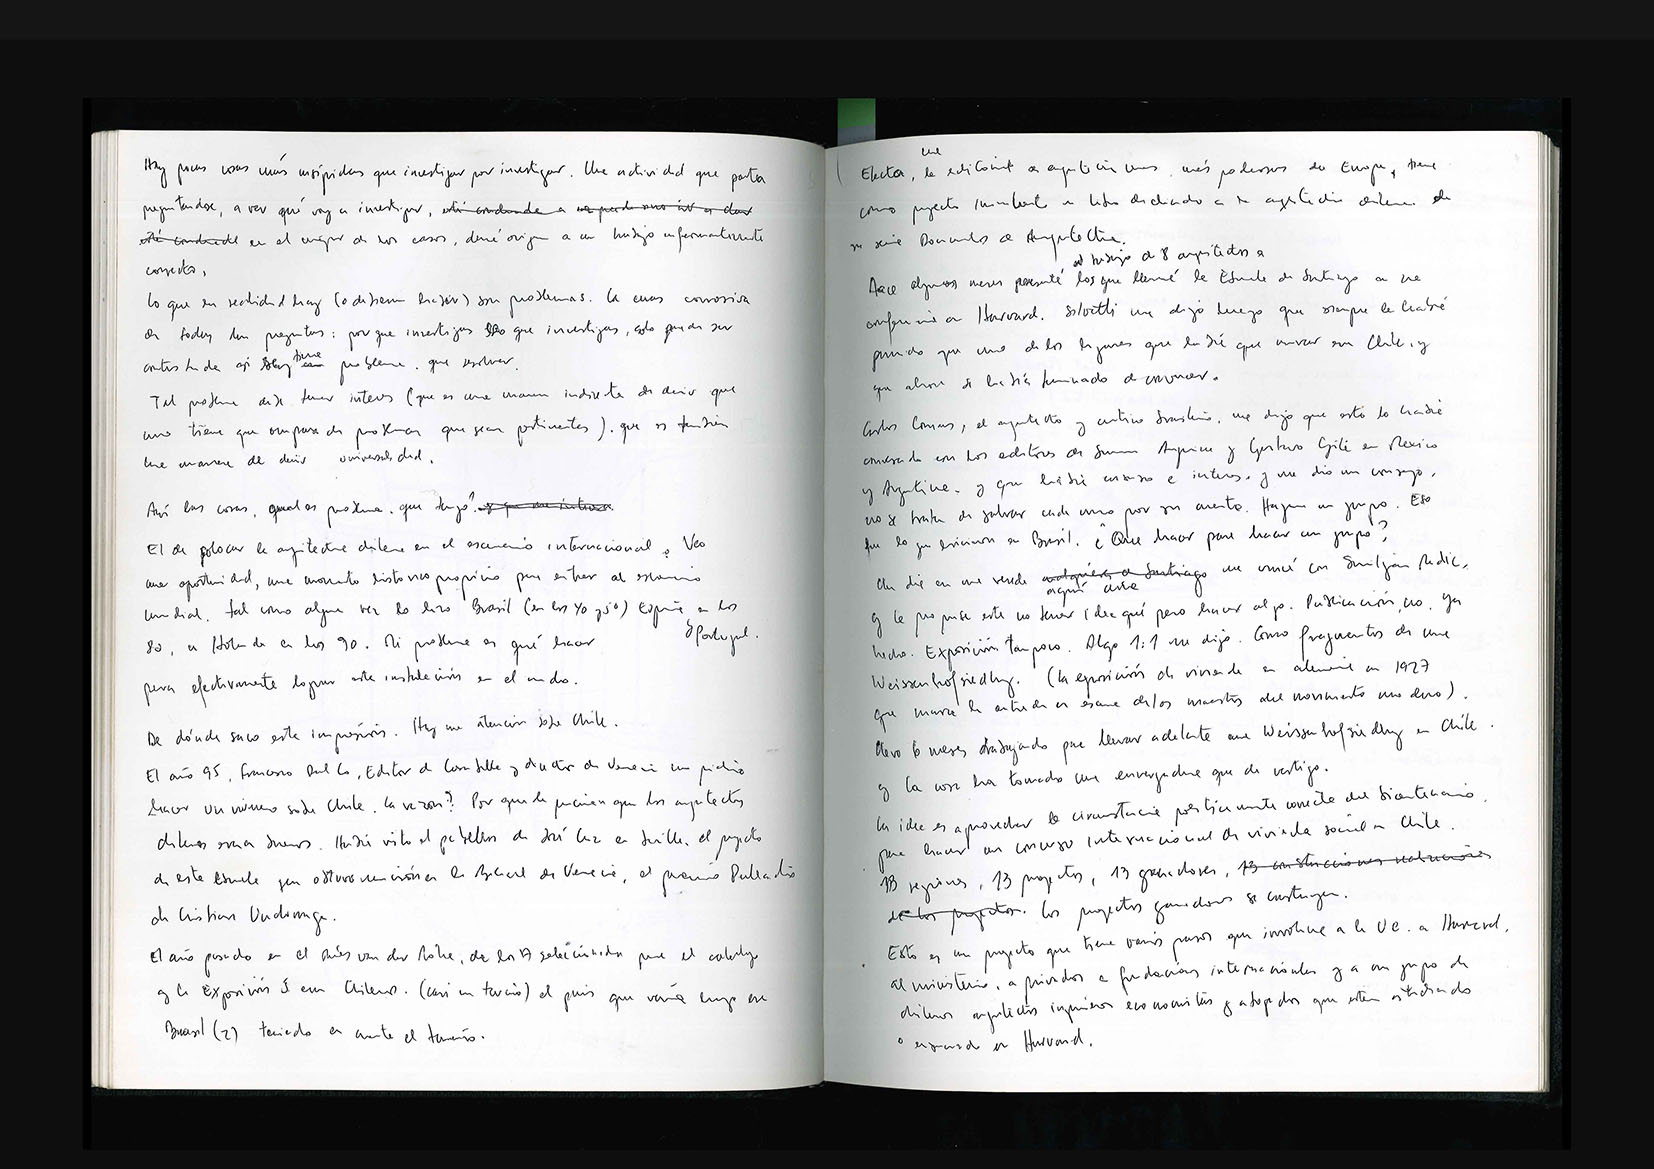 Hay pocas cosas más insípidas que investigar por investigar. Una actividad que parta
preguntándose, a ver qué voy a investigar, está condenada a
está condenada en el mejor de los casos, dará origen a un trabajo informativamente
correcto.
Lo que en realidad hay (o debieran haber) son problemas. La más corrosiva
de todas las preguntas: por que investigas lo que investigas, solo puede ser
contestada si hay tiene un problema que resolver.
Tal problema debe tener interés (que es una manera indirecta de decir que
uno tiene que ocuparse de problemas que sean pertinentes). que es también
una manera de decir universalidad.
Así las cosas, qual es problema que tengo? y que me interesa
El de colocar la arquitectura chilena en el escenario internacional. Veo
una oportunidad, un momento historico propicio para entrar al escenario
mundial. tal como alguna vez lo hizo Brasil (en los 40 y 50) España en los
y Portugal.
80, u Holanda en los 90. Mi problema es qué hacer
para efectivamente lograr esta instalación en el mundo.
De dónde saco esta impresión. Hay una atención sobre Chile.
El año 95, Francesco Dal Co, Editor de Casabella y director de Venecia me pidió
hacer un número sobre Chile. La razón? Por que le parecían que los arquitectos
chilenos eran buenos. Había visto el pabellón de José Cruz en Sevilla, el proyecto
de esta escuela que obtuvo mención en la Bienal de Venecia, el premio Palladio
de Cristian Undurraga.
El año pasado en el Mies van der Rohe, de los 17 seleccionados para el catalogo
y la Exposición 5 eran Chilenos. (casi un tercio) el país que venía luego era
Brasil (2) teniendo en cuenta el tamaño.
una
Electa, la editorial de arquitectura más poderosa de Europa, tiene
como proyecto inminente un libro dedicado a la arquitectura chilena en
su serie Documentos de Arquitectura.
el trabajo de 8 arquitectos a
Hace algunos meses presenté los que llamé la Escuela de Santiago en una
conferencia en Harvard. Silvetti me dijo luego que siempre le había
parecido que uno de los lugares que había que mirar era Chile, y
que ahora se había terminado de convencer.
Carlos Comas, el arquitecto y critico brasileño, me dijo que esto lo había
conversado con los editores de Summa Argentina y Gustavo Gili en Mexico
y Argentina. y que había consenso e interes, y me dio un consejo,
no se trata de salvar cada uno por su cuenta. Hagan un grupo. Eso
fue lo que hicieron en Brasil. ¿Que hacer para hacer un grupo?
Un día en una vereda cualquiera de Santiago me crucé con Smiljan Radic,
aquí cerca
y le propuse esto no tener idea qué pero hacer algo. Publicación, no, ya
hecho. Exposición tampoco. Algo 1:1 me dijo. Como fragmentos de una
Weissenhofsiedlung. (la exposición de vivienda en alemania en 1927
que marca la entrada en escena de los maestros del movimiento moderno).
Llevo 6 meses trabajando para llevar adelante una Weissenhofsiedlung en Chile.
y la cosa ha tomado una envergadura que da vertigo.
La idea es aprovechar la circunstancia políticamente correcta del bicentenario
para hacer un concurso internacional de vivienda social en Chile.
13 regiones, 13 proyectos, 13 ganadores, 13 construcciones
de los proyectos. Los proyectos ganadores se construyen.
Esto es un proyecto que tiene varios pasos que involucra a la UC. a Harvard,
al ministerio, a privados a fundaciones internacionales y a un grupo de
chilenos arquitectos ingenieros economistas y abogados que estan estudiando
o enseñando en Harvard.